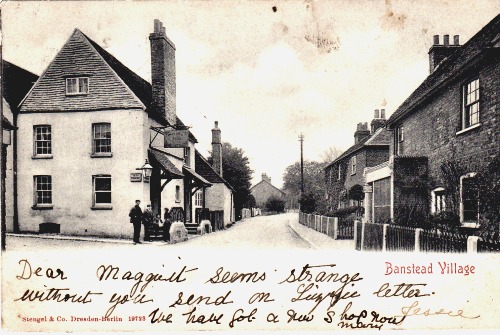 Banstead Village
Dear Maggie it seems strange
without you send on Lizzie letter.
Jessie
We have got a new Shop now
Mary
Stengel & Co. Dresden-Berlin 19723